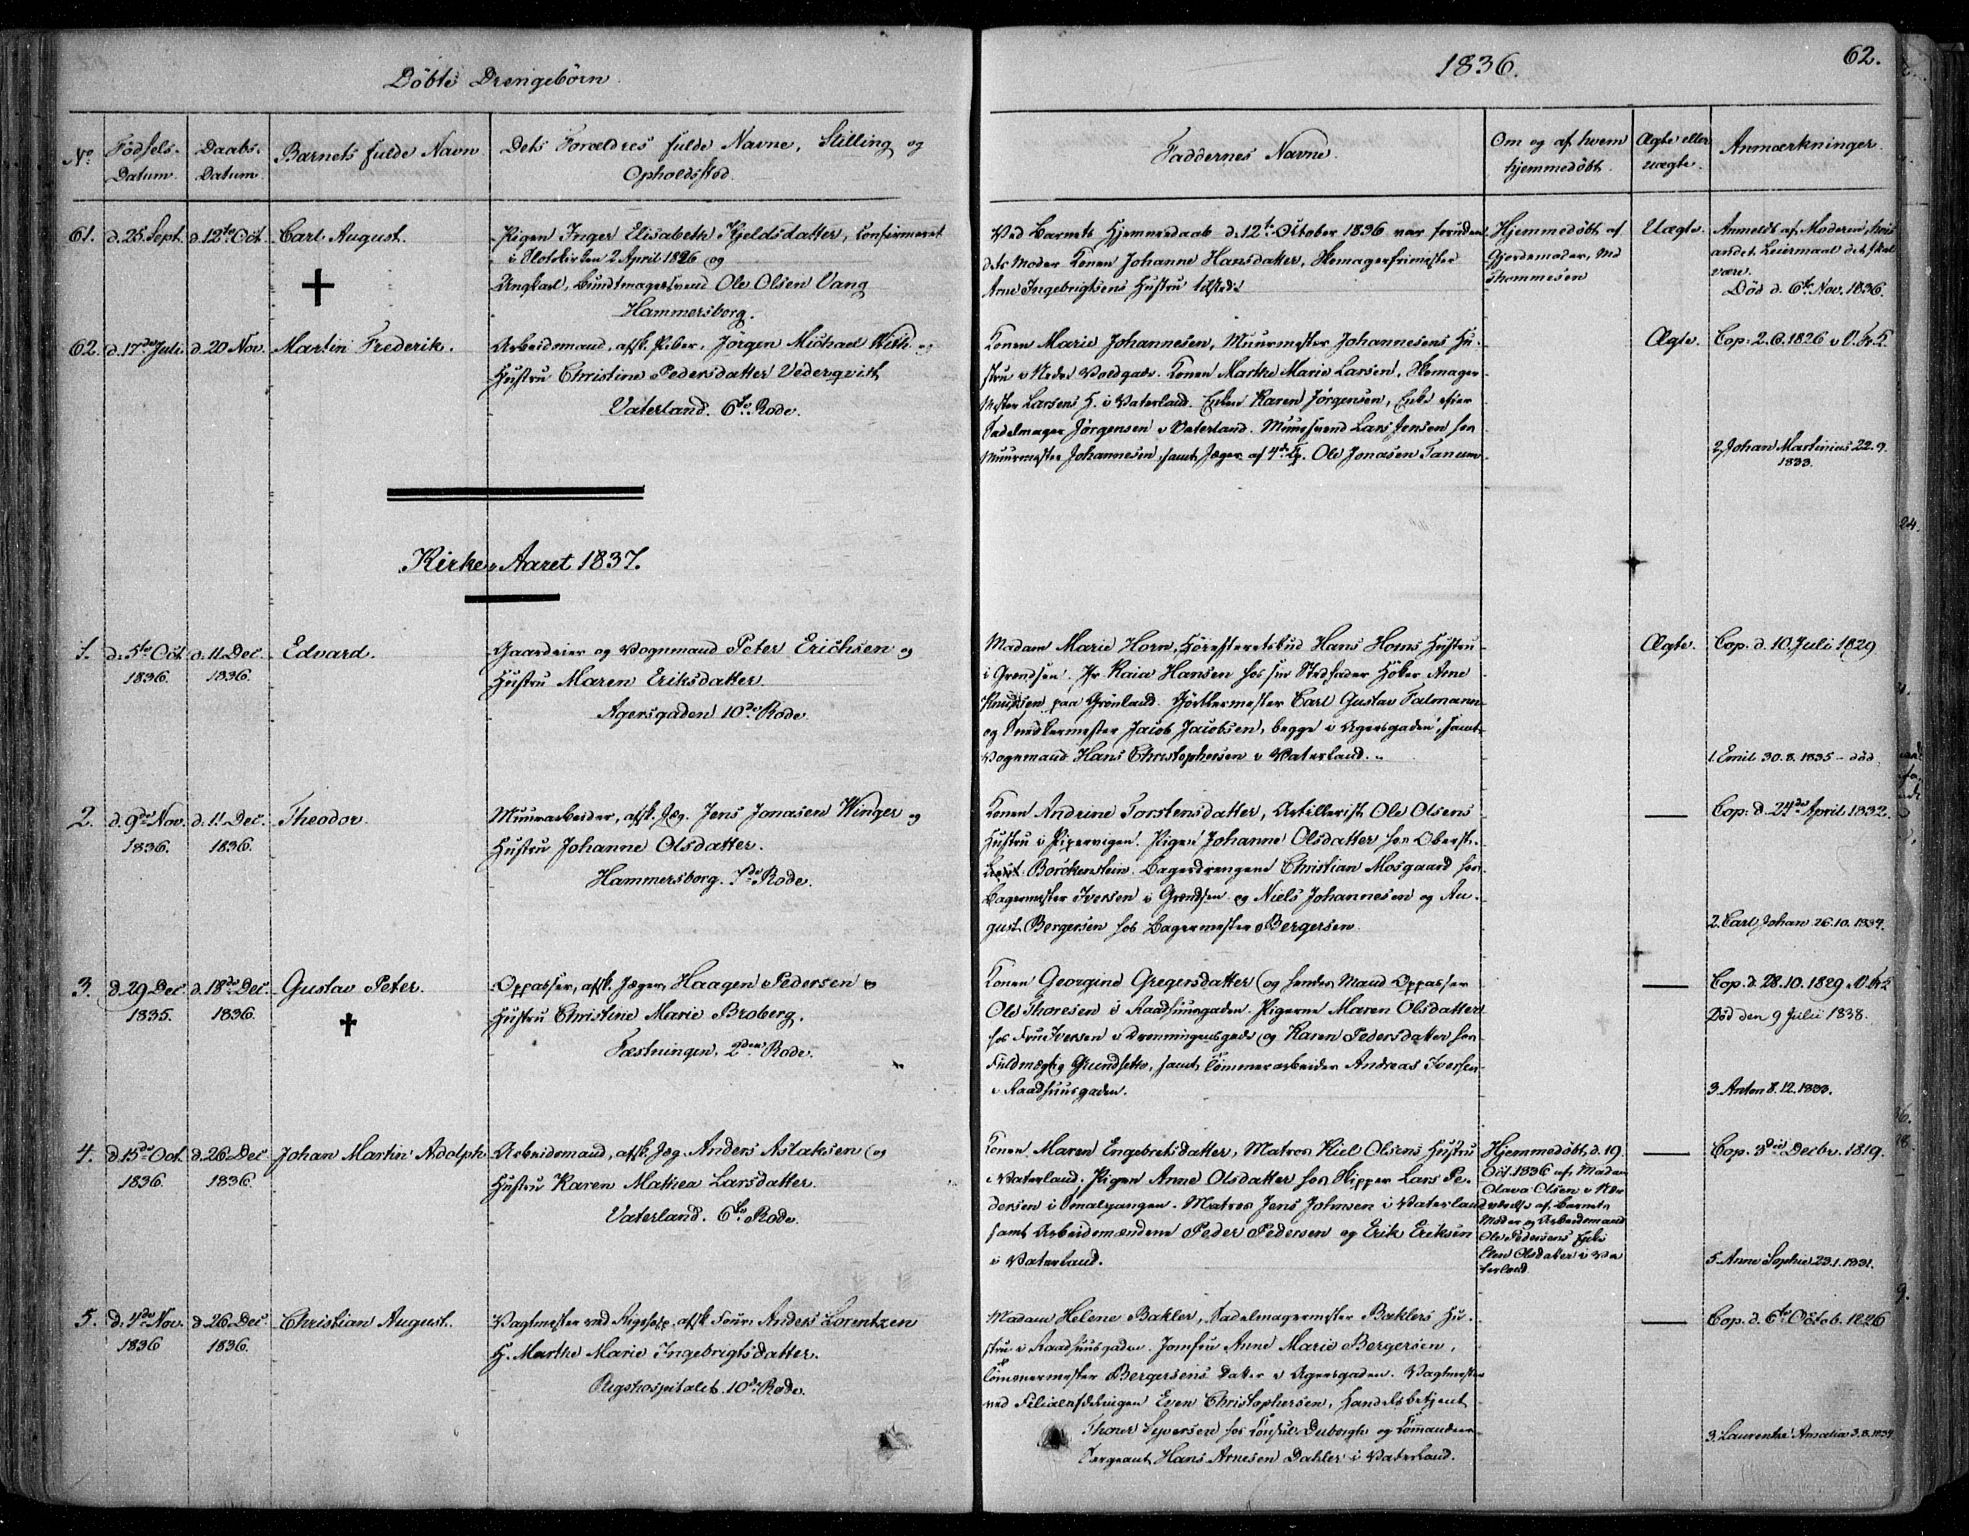 Döbte Drengebörn.
1836.
62.
No.
Födsels-
Datum.
Daabs-
Datum.
Barnets fulde Navn
Dets Forældres fulde Navne, Stilling og
Opholdssted.
Faddernes Navne.
Om og af hvem
hjemmedöbt.
Ægte eller
uægte.
Anmærkninger.
61. d. 25 Sept. d. 12te Oct. Carl August.
Pigen Inger Elisabeth Kjeldsdatter, Confirmeret
i Slotskirken 2 April 1826 og
Ungkarl, Bundtmagersvend Ole Olsen Vang
Hammersborg.
Ved Barnets Hjemmedaab d. 12te October 1836 var foruden
dets Moder Konen Johanne Hansdatter,
Arne Ingebrigtsens Hustru tilstede
Hjemmedöbt af
Gjordemoder, Md
Thommesen
Uægte.
Anmeldt af Moderen, hvis
andet Leiermaal det skal
være.
Död d. 6te Nov. 1836.
62. d. 17de Juli d. 20 Nov. Martin Frederik.
Arbeidsmand, afsk. Piber, Jörgen Michael With og
Hustru Christine Pedersdatter Vederqvist
Vaterland. 6te Rode.
Konen Marie Johannesen, Muurmester Johannesens Hu-
stru i Nedre Voldgade. Konen Marthe Marie Larsen,
Mester Larsens H. i Vaterland. Enken Karen Jörgensen, Enke efter
Sadelmager Jörgensen i Vaterland. Muursvend Lars Jensen hos
Muurmester Johannesen, samt Jæger af 4de Cp. Ole Jonasen Tanum
Ægte.
Cop: 2.6.1826 v O. Fr. K.
2, Johan Martinius 22.9.
1833.
Kirke-Aaret 1837.
1. d. 5te Oct. 1836. d. 11. Dec. 1836. Edvard.
Gaardeier og Vognmand Peter Erichsen og
Hustru Maren Eriksdatter.
Agersgaden 10de Rode.
Madam Marie Horn, Höiesteretsbud Hans Horns Hustru
i Grændsen. Pr Raia Hansen hos sin Stedfader Höker Arne
Knudsen paa Grönland. Gjörtlermester Carl Gustav Falmann
og Snedkermester Jacob Jacobsen, begge i Agersgaden, samt
Vognmand Hans Christophersen i Vaterland.
Ægte.
Cop. d. 10. Juli 1829
1. Emil 30.8.1835 - död
2. d. 9de Nov. 1836. d. 11. Dec. 1836. Theodor.
Muurarbeider, afsk. Jæg. Jens Jonasen Winger og
Hustru Johanne Olsdatter.
Hammersborg. 7de Rode.
Konen Andrine Torstensdatter, Artillerist Ole Olsens
Hustru i Pipervigen. Pigen Johanne Olsdatter hos Oberst-
Lieut. Borckenstein. Bagerdrengene Christian Mosgaard hos
Bagermester Iversen i Grændsen og Niels Johannesen og Au-
gust Bergersen hos Bagermester Bergersen.
Cop: d. 24de April 1832.
2. Carl Johan 26.10.1834.
3. d. 29 Dec. 1835. d. 18de Dec. 1836. Gustav Peter.
Oppasser, afsk. Jæger, Haagen Pedersen og
Hustru Christine Marie Broberg.
Fæstningen, 2den Rode.
Konen Georgine Gregersdatter og hendes Mand Oppasser
Ole Thoresen i Raadhuusgaden. Pigerne Maren Olsdatter
hos Fru Iversen i Dronningensgade og Karen Pedersdatter hos
Fuldmægtig Grundsetts, samt Tömmerarbeider Andreas Iversen
i Raadhuusgaden.
Cop. d. 28.10.1829. v O. Fr. K
Död den 9 Julii 1838.
3 Anton 8.12.1833.
4. d. 15de Oct. 1836. d. 26. Dec. 1836. Johan Martin Adolph
Arbeidsmand, afsk. Jæg. Anders Aslaksen og
Hustru Karen Mathea Larsdatter.
Vaterland. 6te Rode.
Konen Maren Engebretsdatter, Matros Kiel Olsens Hustru
i Vaterland. Pigen Anne Olsdatter hos Skipper Lars Pe-
dersen i Smalgangen. Matros Jens Johnsen i Vaterland
samt Arbeidsmændene Peder Pedersen og Erik Eriksen
i Vaterland.
Hjemmedöbt d. 19
Oct. 1836 af Madam
Olava Olsen i Nær
værelse af Barnets
Moder og Arbeidsmand
Ole Pedersens Enke
Elen Olsdatter i Va
terland.
Cop. 3die Decbr. 1819.
5. Anne Sophie 23.1.1831.
5. d. 4de Nov. 1836 d. 26. Dec 1836. Christian August.
Vagtmester ved Rigshosp. afsk. Four. Anders Lorentzen
H. Marthe Marie Ingebrigtsdatter.
Rigshospitalet. 10de Rode.
Madam Helene Bakler, Sadelmagermester Baklers Hu-
stru i Raadhuusgaden. Jomfru Anne Marie Bergersen,
Tömmermester Bergersens Datter i Agersgaden. Vagtmester
ved Filialafdelingen Even Christophersen, Handelsbetjent
Thorer Syversen hos Consul Duborgh og Commandeer
Sergeant Hans Arnesen Dahler i Vaterland.
Cop. d. 6te Octob. 1826
3. Laurentze Amalia 3.8.1834